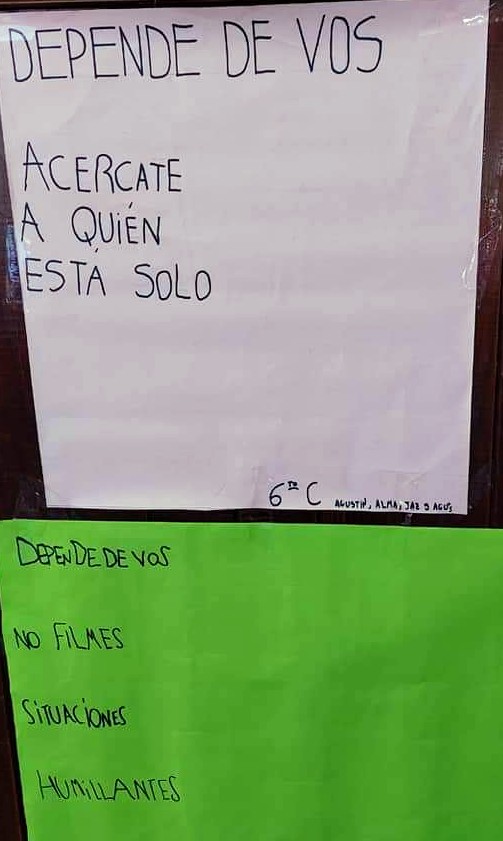 DEPENDE DE VOS
ACERCATE
A QUIÉN
ESTÁ SOLO
6to C AGUSTIN, ALMA, JAZ Y AGUS
DEPENDE DE VOS
NO FILMES
SITUACIONES
HUMILLANTES